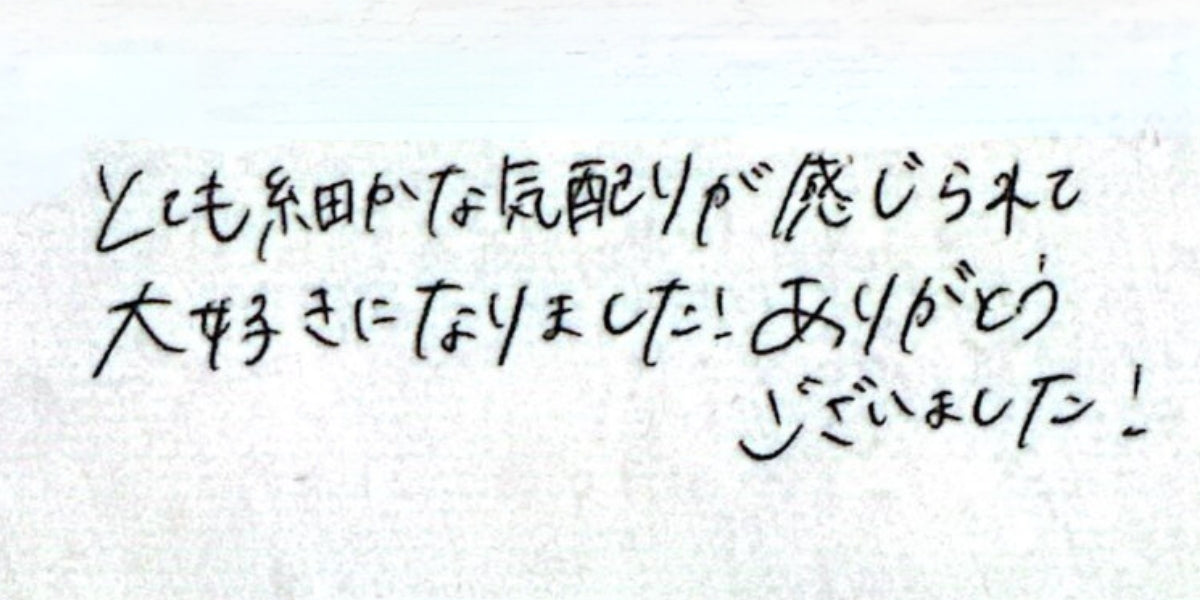 とても細かな気配りが感じられて
大好きになりました!ありがとう
ございました!